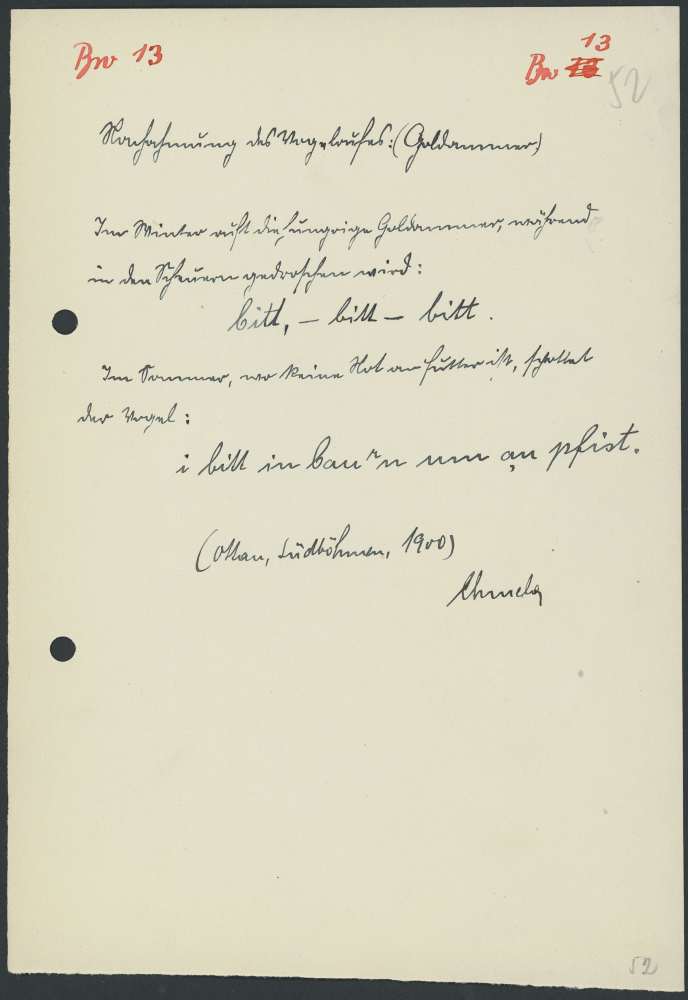 Bw 13
13
Bw 13
52
Nachahmung des Vogelrufes: (Goldammer)
Im Winter ruft die hungrige Goldammer, während
in den Scheuern gedroschen wird:
bitt, – bitt – bitt.
Im Sommer, wo keine Not an Futter ist, spottet
der Vogel:
i bitt in Bau'n um an pfist.
(Ottau, Südböhmen, 1900)
52